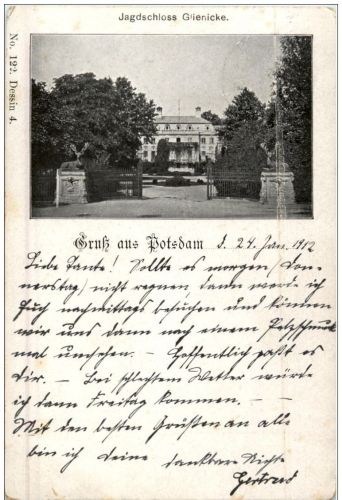 Jagdschloss Glienicke.
No. 122. Dessin 4.
Gruß aus Potsdam d. 24. Jan. 1912
Liebe Tante! Sollte es morgen (Don-
nerstag) nicht regnen, dann werde ich
Euch nachmittags besuchen und können
wir uns dann nach einem Pelzschmuck
mal umsehen. — Hoffentlich paßt es
Dir. — Bei schlechtem Wetter würde
ich dann Freitag kommen. —
Mit den besten Grüßen an alle
bin ich Deine dankbare Nichte
Gertrud